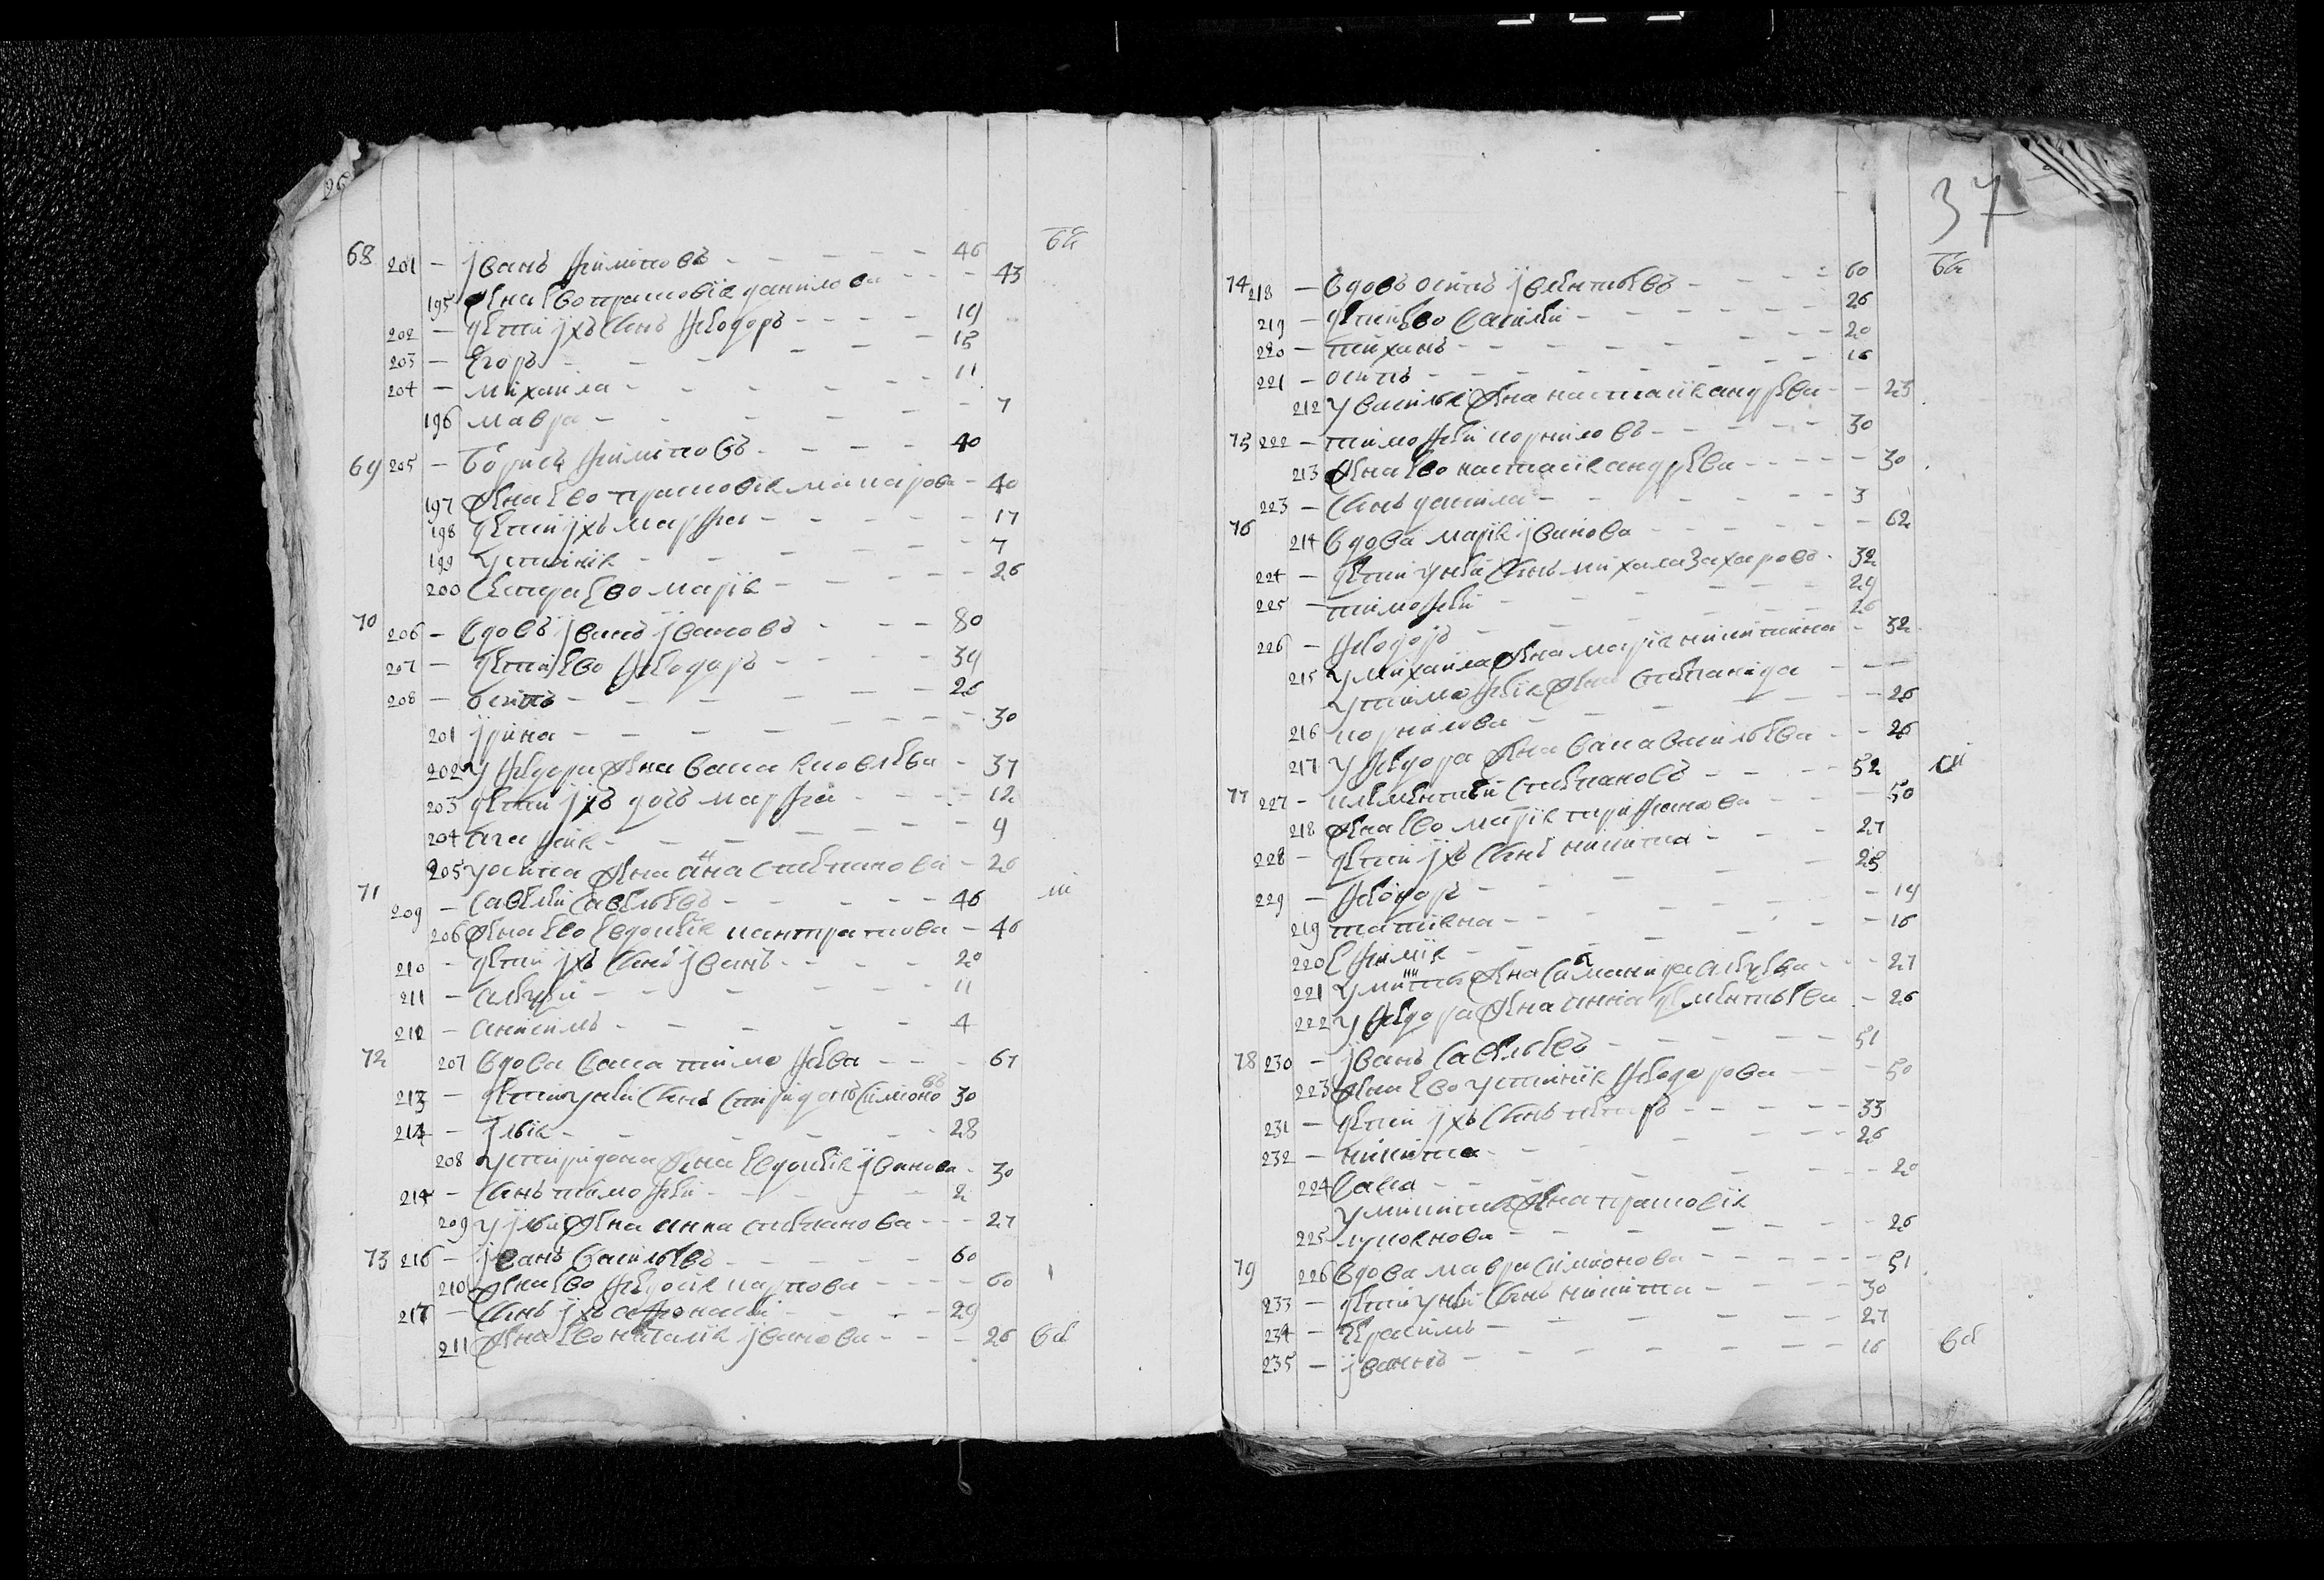 37
68 201 — іванъ филиповъ 46 бы
195 жена ево прасковія данилова 43
202 — дети ихъ сынъ феодоръ 19
203 — егоръ 15
204 — михаила 11
196 мавра 7
69 205 — борисъ филиповъ 40
197 жена ево прасковія макарова 40
198 дети ихъ марфа 17
199 устинія 7
200 сестра ево марія 26
70 206 — вдовъ іванъ івановъ 80
207 — дети ево феодоръ 39
208 — осипъ 26
201 ірина 30
202 у федора жена васа яковлева 37
203 дети ихъ дочь марфа 12
204 агафия 9
205 у осипа жена анна степанова 26
71 209 — савелей савельевъ 46
206 жена ево евдокия кантратиова 46
210 — дети ихъ сынъ іванъ 20
211 — алексей 11
212 — анисимъ 4
72 207 вдова васа тимофеева 67
213 — дети у ней сынъ спиридонъ симоновъ 30
214 — ілья 28
208 у спиридона жена евдокия іванова 30
214 — сынъ тимофей 2
209 у ільи жена анна степанова 27
73 216 — іванъ васильевъ 60
210 жена ево федосия карпова 60
217 — сынъ ихъ афонасей 29
211 жена ево наталия іванова 26 ве
74 218 — вдовъ осипъ 60 бы
219 — дети ево василей 26
220 — тиханъ 20
221 — осипъ 16
212 у василья жена настасия андреева 23
75 222 — тимофей корниловъ 30
213 жена ево настасия андреева 30
223 — сынъ данила 3
76 214 вдова марія іванова 62
224 — дети у ней сынъ михаила захаровъ 32
225 — тимофей 29
226 — феодоръ 26
215 у михаила жена марія никитина 32
у тимофея жена степанида
216 корнилова 26
217 у федора жена васа васильева 26
77 227 — клементей степановъ 52
218 жена ево марія трифанова 50
228 — дети ихъ сынъ никита 27
229 — феодоръ 25
219 татияна 19
220 ефимия 16
221 у никиты жена алексеева 27
222 у федора жена анна дементьева 26
78 230 — іванъ савельевъ 51
223 жена ево устиния феодорова 50
231 — дети ихъ сынъ петръ 33
232 — никита 26
224 васа 20
у никиты жена прасковія
225 лукоянова 26
79 226 вдова мавра симионова 51
233 — дети у ней сынъ никита 30
234 — герасимъ 27
235 — іванъ 16 ве